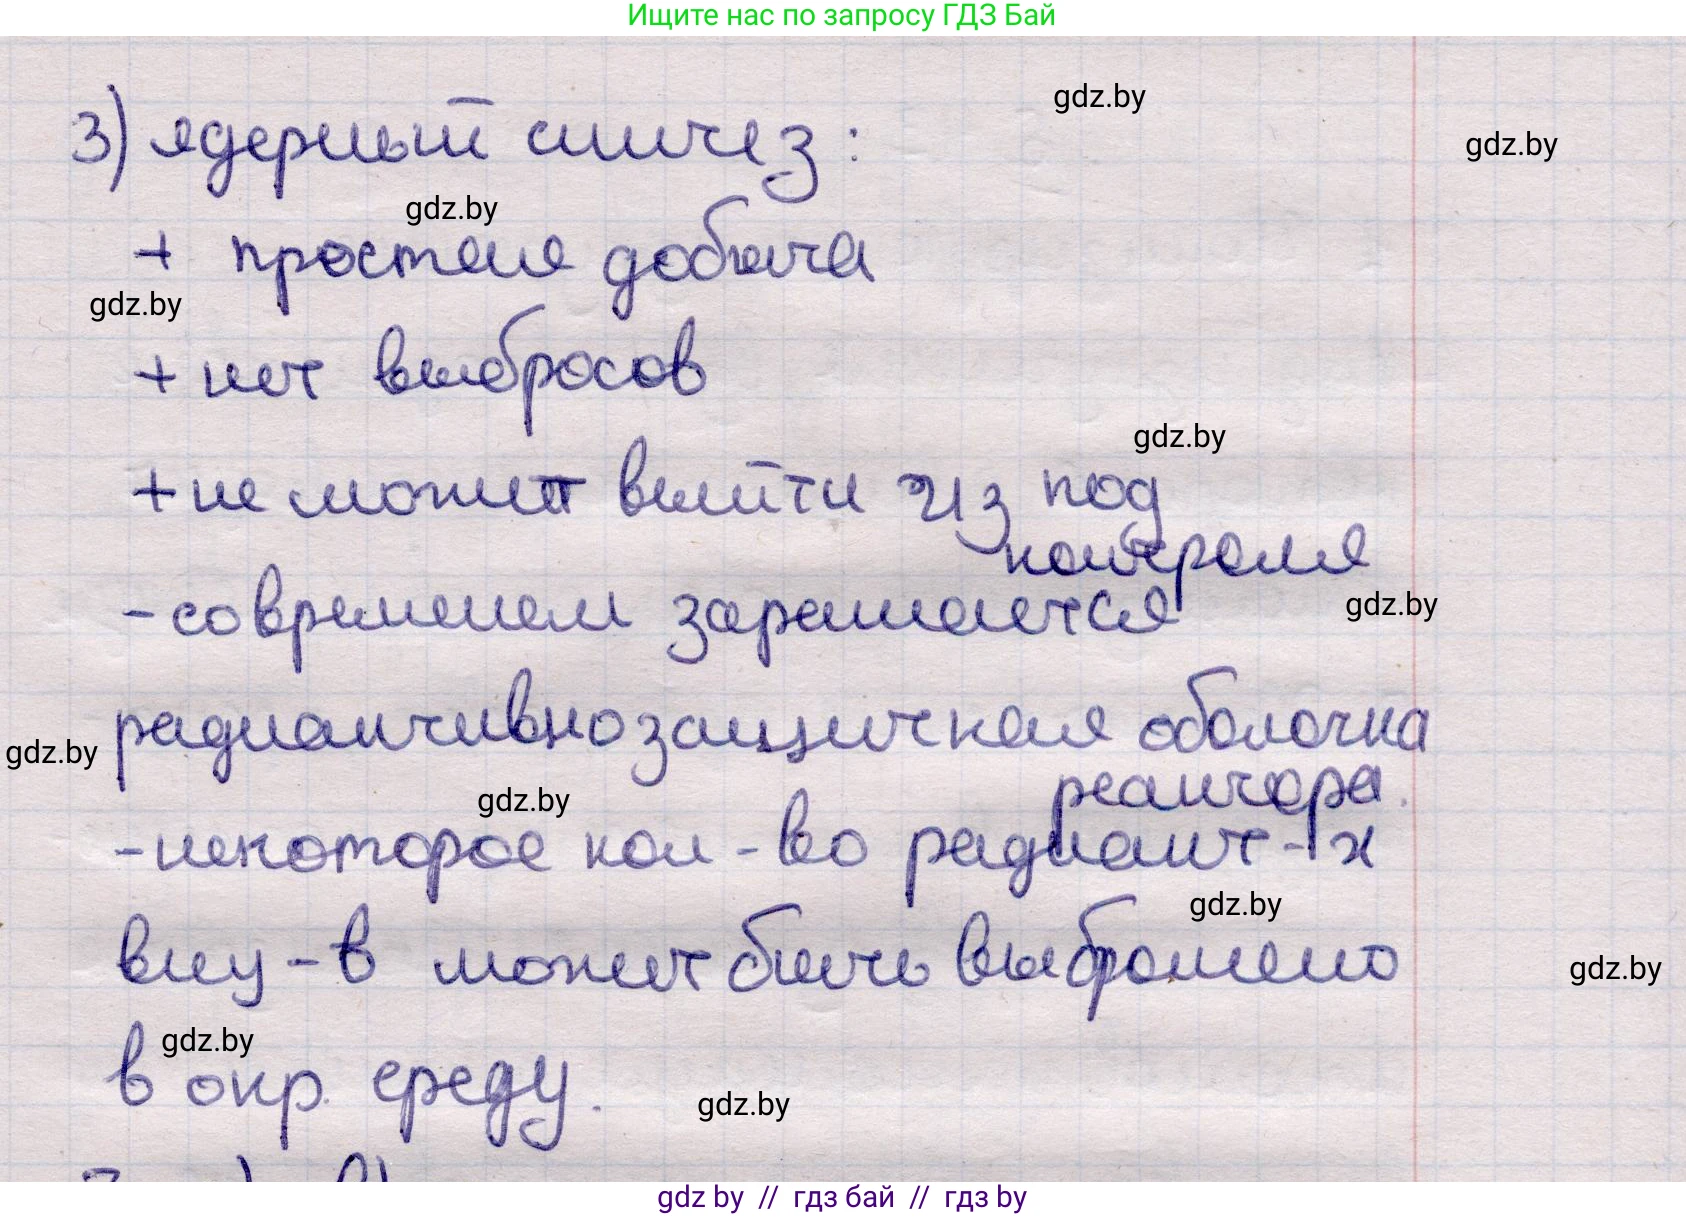 Ищите нас по запросу ГДЗ Бай
gdz.by
3) ядерный синтез:
gdz.by
gdz.by
+ простая добыча
gdz.by
+ нет выбросов
gdz.by
+ не может выйти из под
контроля
- современем заражается
gdz.by
радиактивнозащитная оболочка
gdz.by
реактора.
gdz.by
- некоторое кол-во радиакт-х
gdz.by
вну-в может быть выброшено
gdz.by
gdz.by
в окр. среду.
gdz.by
gdz by // гдз бай // гдз by